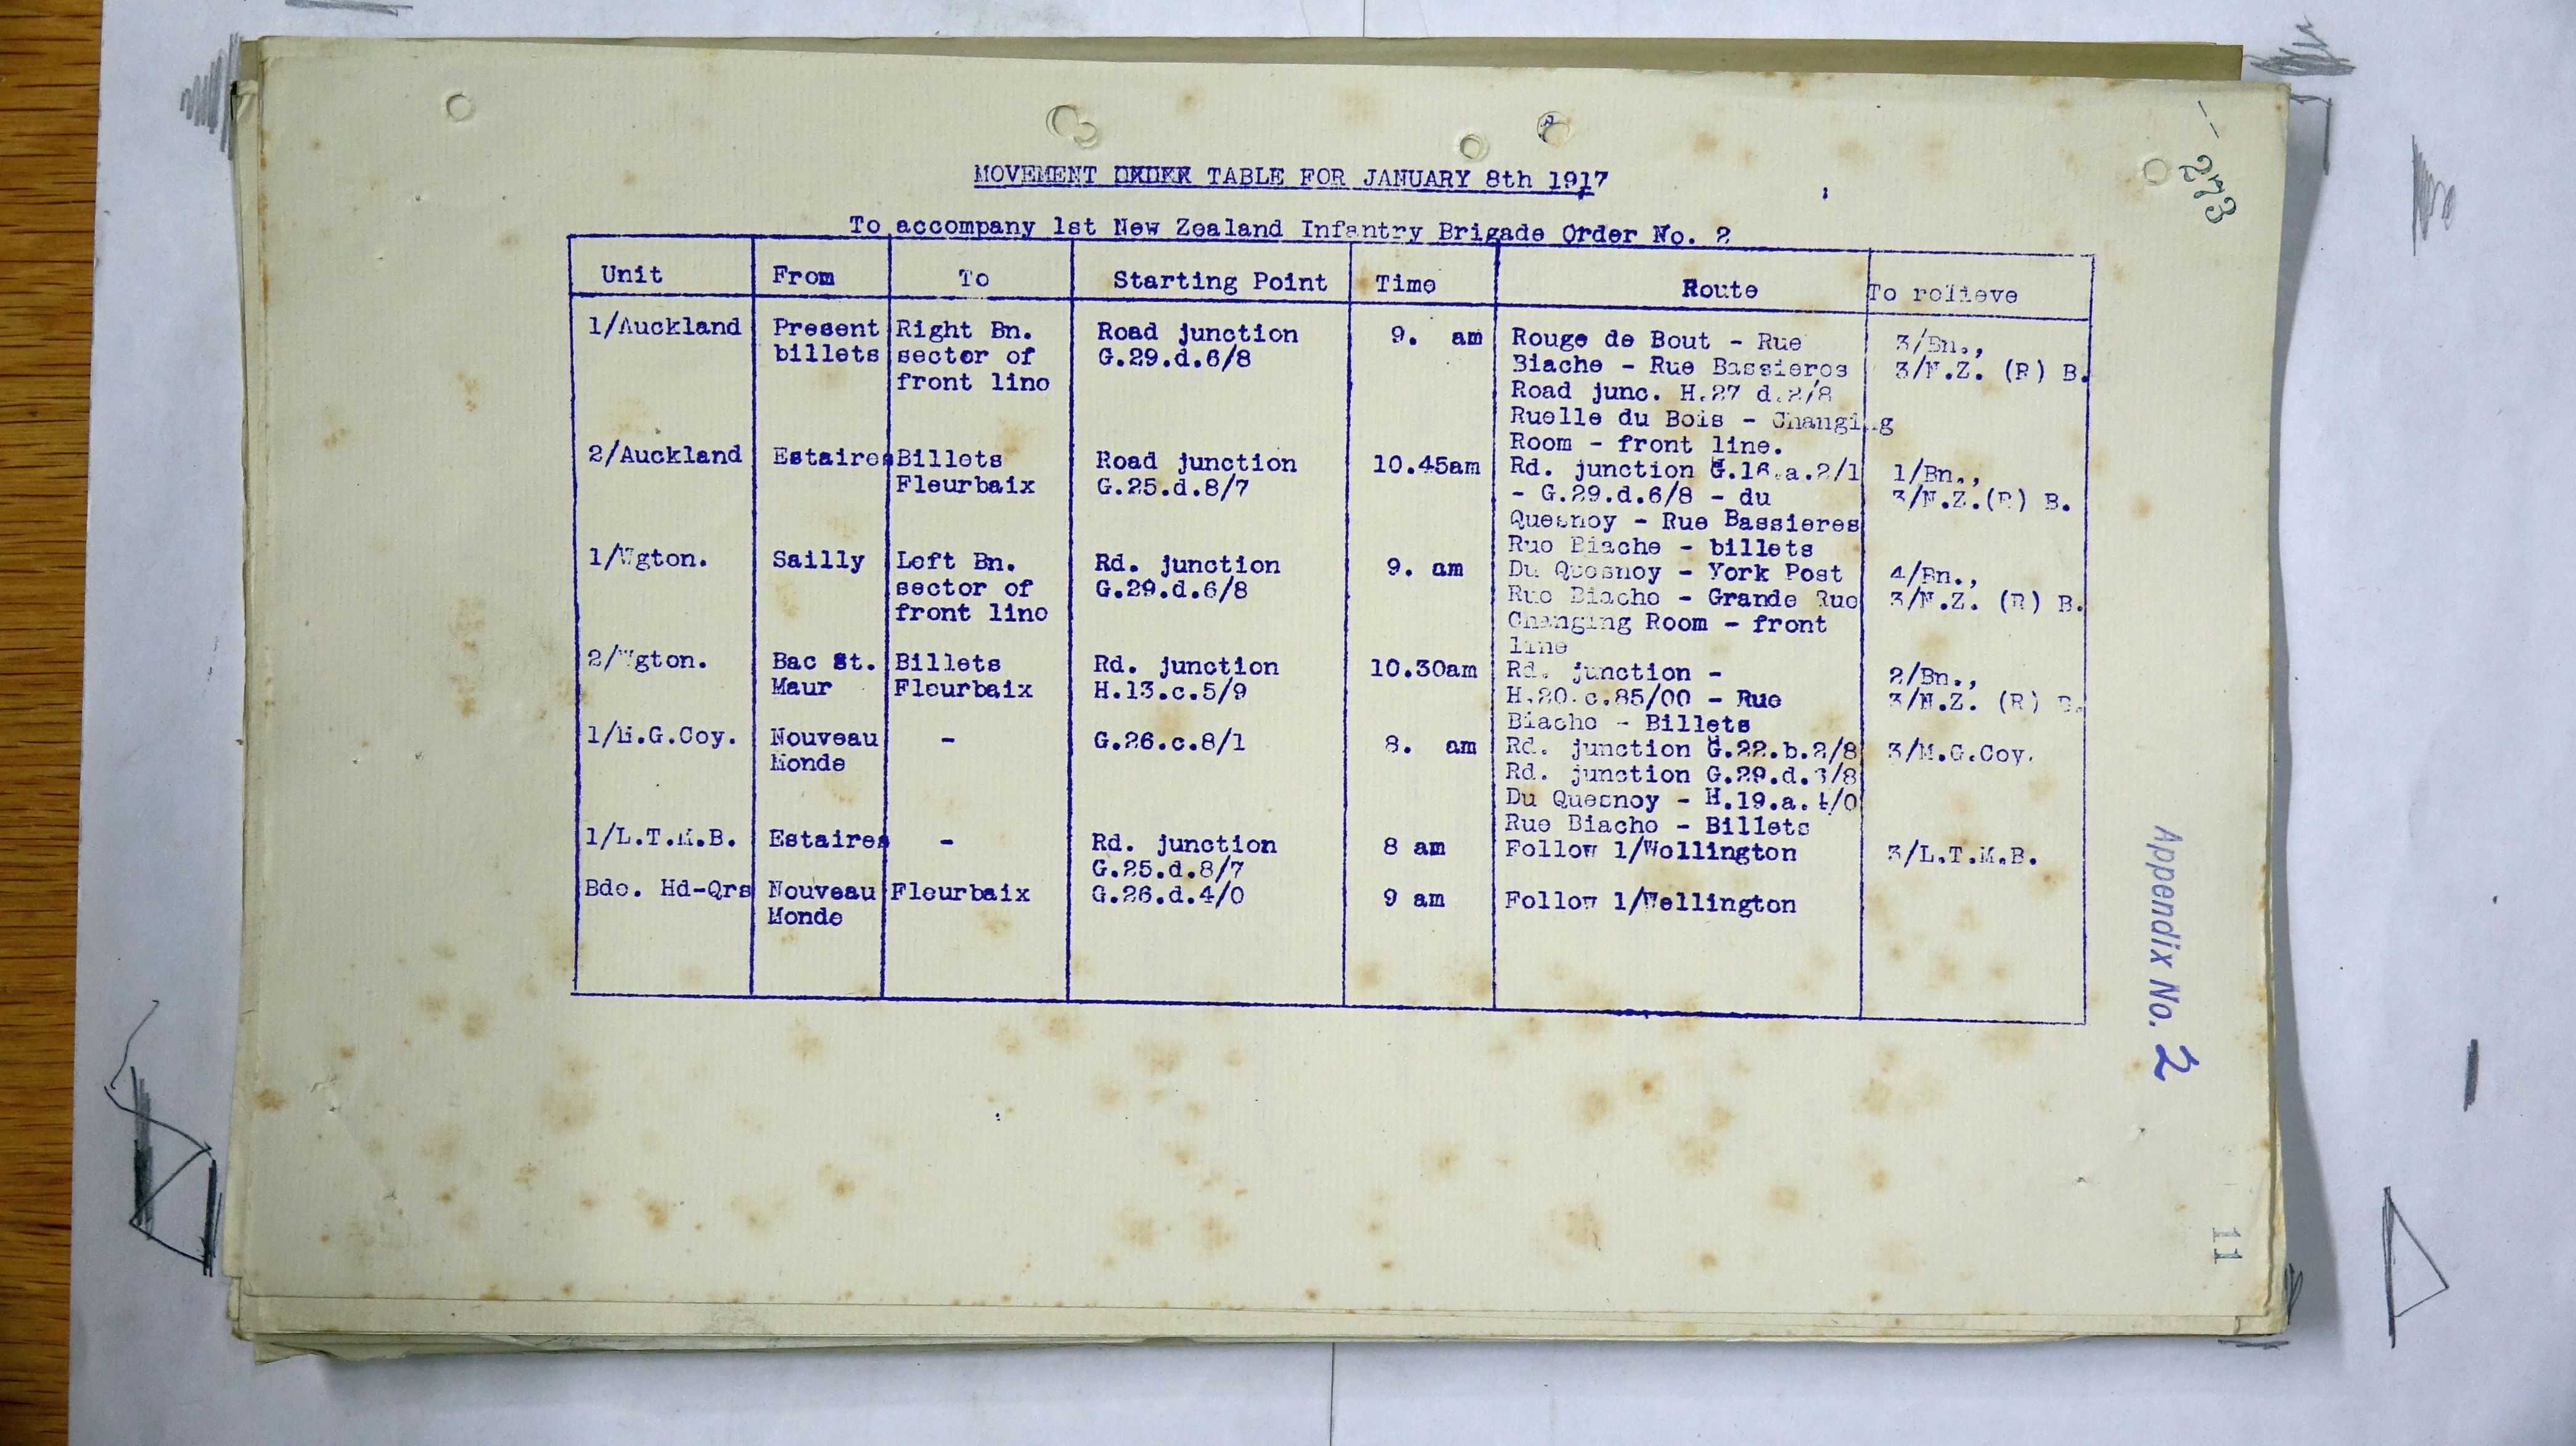 273
MOVEMENT TABLE FOR JANUARY 8th 1917
To accompany 1st New Zealand Infantry Brigade Order No. 2
Unit From To Starting Point Time Route To relieve
1/Auckland Present billets Right Bn. sector of front line Road junction G.29.d.6/8 9. am Rouge de Bout - Rue 3/Bn.,
Biache - Rue Bassieres 3/N.Z. (R) B.
Road junc. H.27 d.2/8
Ruelle du Bois - Changing
Room - front line.
2/Auckland Estaires Billets Fleurbaix Road junction G.25.d.8/7 10.45am Rd. junction G.16.a.2/1 1/Bn.,
- G.29.d.6/8 - du 3/N.Z.(R) B.
Quesnoy - Rue Bassieres
Rue Biache - billets
1/Wgton. Sailly Left Bn. sector of front line Rd. junction G.29.d.6/8 9. am Du Quesnoy - York Post 4/Bn.,
Rue Biache - Grande Rue 3/N.Z. (R) B.
Changing Room - front
line
2/Wgton. Bac St. Maur Billets Fleurbaix Rd. junction H.13.c.5/9 10.30am Rd. junction - 2/Bn.,
H.20.c.85/00 - Rue 3/N.Z. (R) B.
Biache - Billets
1/M.G.Coy. Nouveau Monde - G.26.c.8/1 8. am Rd. junction G.22.b.2/8 3/M.G.Coy.
Rd. junction G.29.d.6/8
Du Quesnoy - H.19.a.4/0
Rue Biache - Billets
1/L.T.M.B. Estaires - Rd. junction G.25.d.8/7 8 am Follow 1/Wellington 3/L.T.M.B.
Bde. Hd-Qrs Nouveau Monde Fleurbaix G.26.d.4/0 9 am Follow 1/Wellington
Appendix No. 2
11